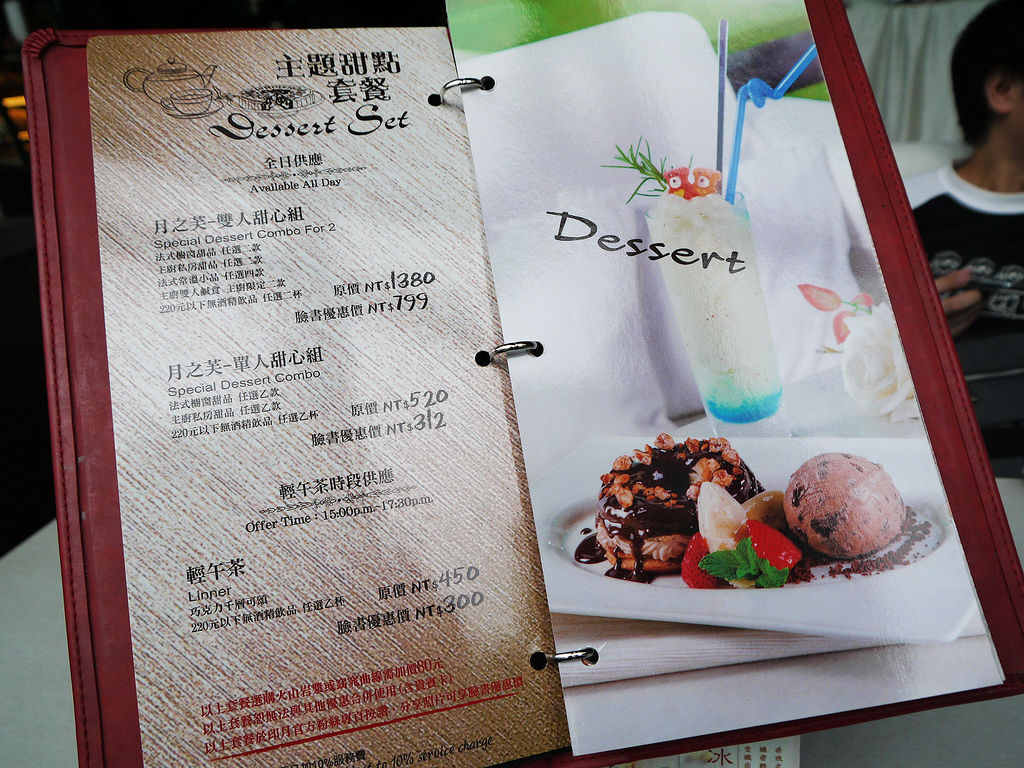 主題甜點
套餐
Dessert Set
全日供應
Available All Day
月之芙-雙人甜心組
Special Dessert Combo For 2
法式櫥窗甜品 任選二款
主廚私房甜品 任選二款
法式常溫小品 任選四款
主廚雙人鹹食 主廚限定二款
220元以下無酒精飲品 任選二杯
原價 NT$1380
臉書優惠價 NT$799
月之芙-單人甜心組
Special Dessert Combo
法式櫥窗甜品 任選乙款
主廚私房甜品 任選乙款
220元以下無酒精飲品 任選乙杯
原價 NT$520
臉書優惠價 NT$312
輕午茶時段供應
Offer Time : 15:00p.m.~17:30p.m.
輕午茶
Linner
巧克力千層可頌
220元以下無酒精飲品 任選乙杯
原價 NT$450
臉書優惠價 NT$300
以上套餐選購火山岩漿或窈窕曲線需加價80元
以上套餐親無法與其他優惠合併使用(含貴賓卡)
以上套餐於印月官方粉絲專頁按讚，分享照片可享臉書優惠價
加10%服務費
to 10% service charge
Dessert
冰